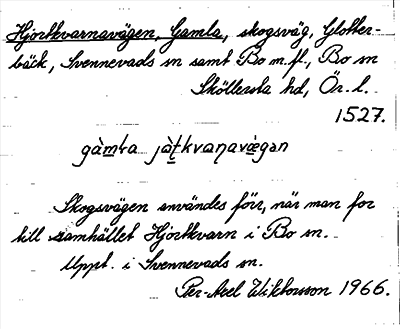 Hjortkvarnavägen, Gamla, skogsväg, Glotter-
bäck, Svennevads sn samt Bo m.fl., Bo sn
Sköllersta hd, Ör. l.
1527.
gàmḷa jàṭkvaṇavægən
Skogsvägen användes förr, när man for
till samhället Hjortkvarn i Bo sn.
Uppt. i Svennevads sn.
Per-Axel Wiktorsson 1966.